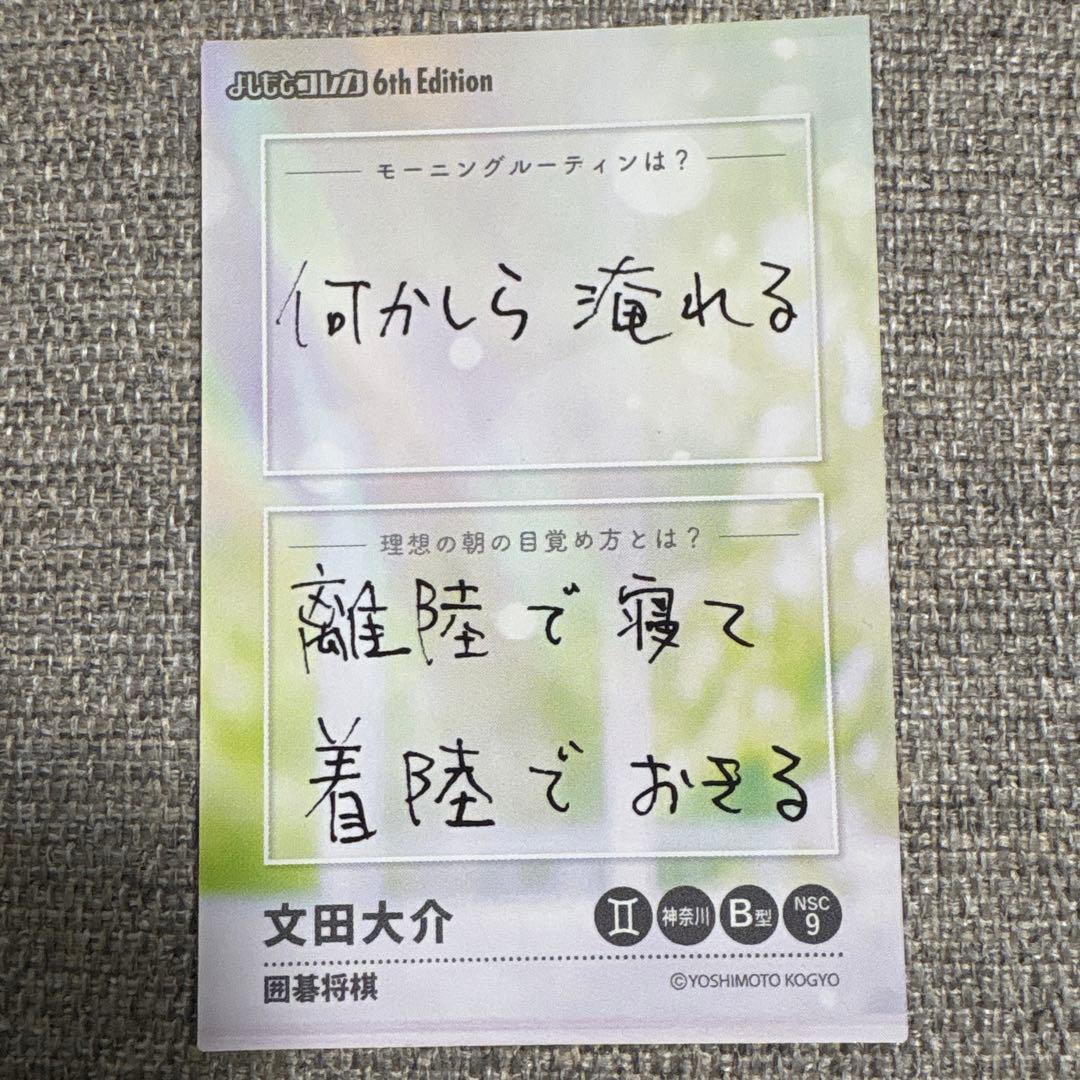 よしもとコレカ 6th Edition
モーニングルーティンは？
何かしら 淹れる
理想の朝の目覚め方とは？
離陸で寝て
着陸でおきる
文田大介
♊ 神奈川 B型 NSC 9
囲碁将棋
©YOSHIMOTO KOGYO